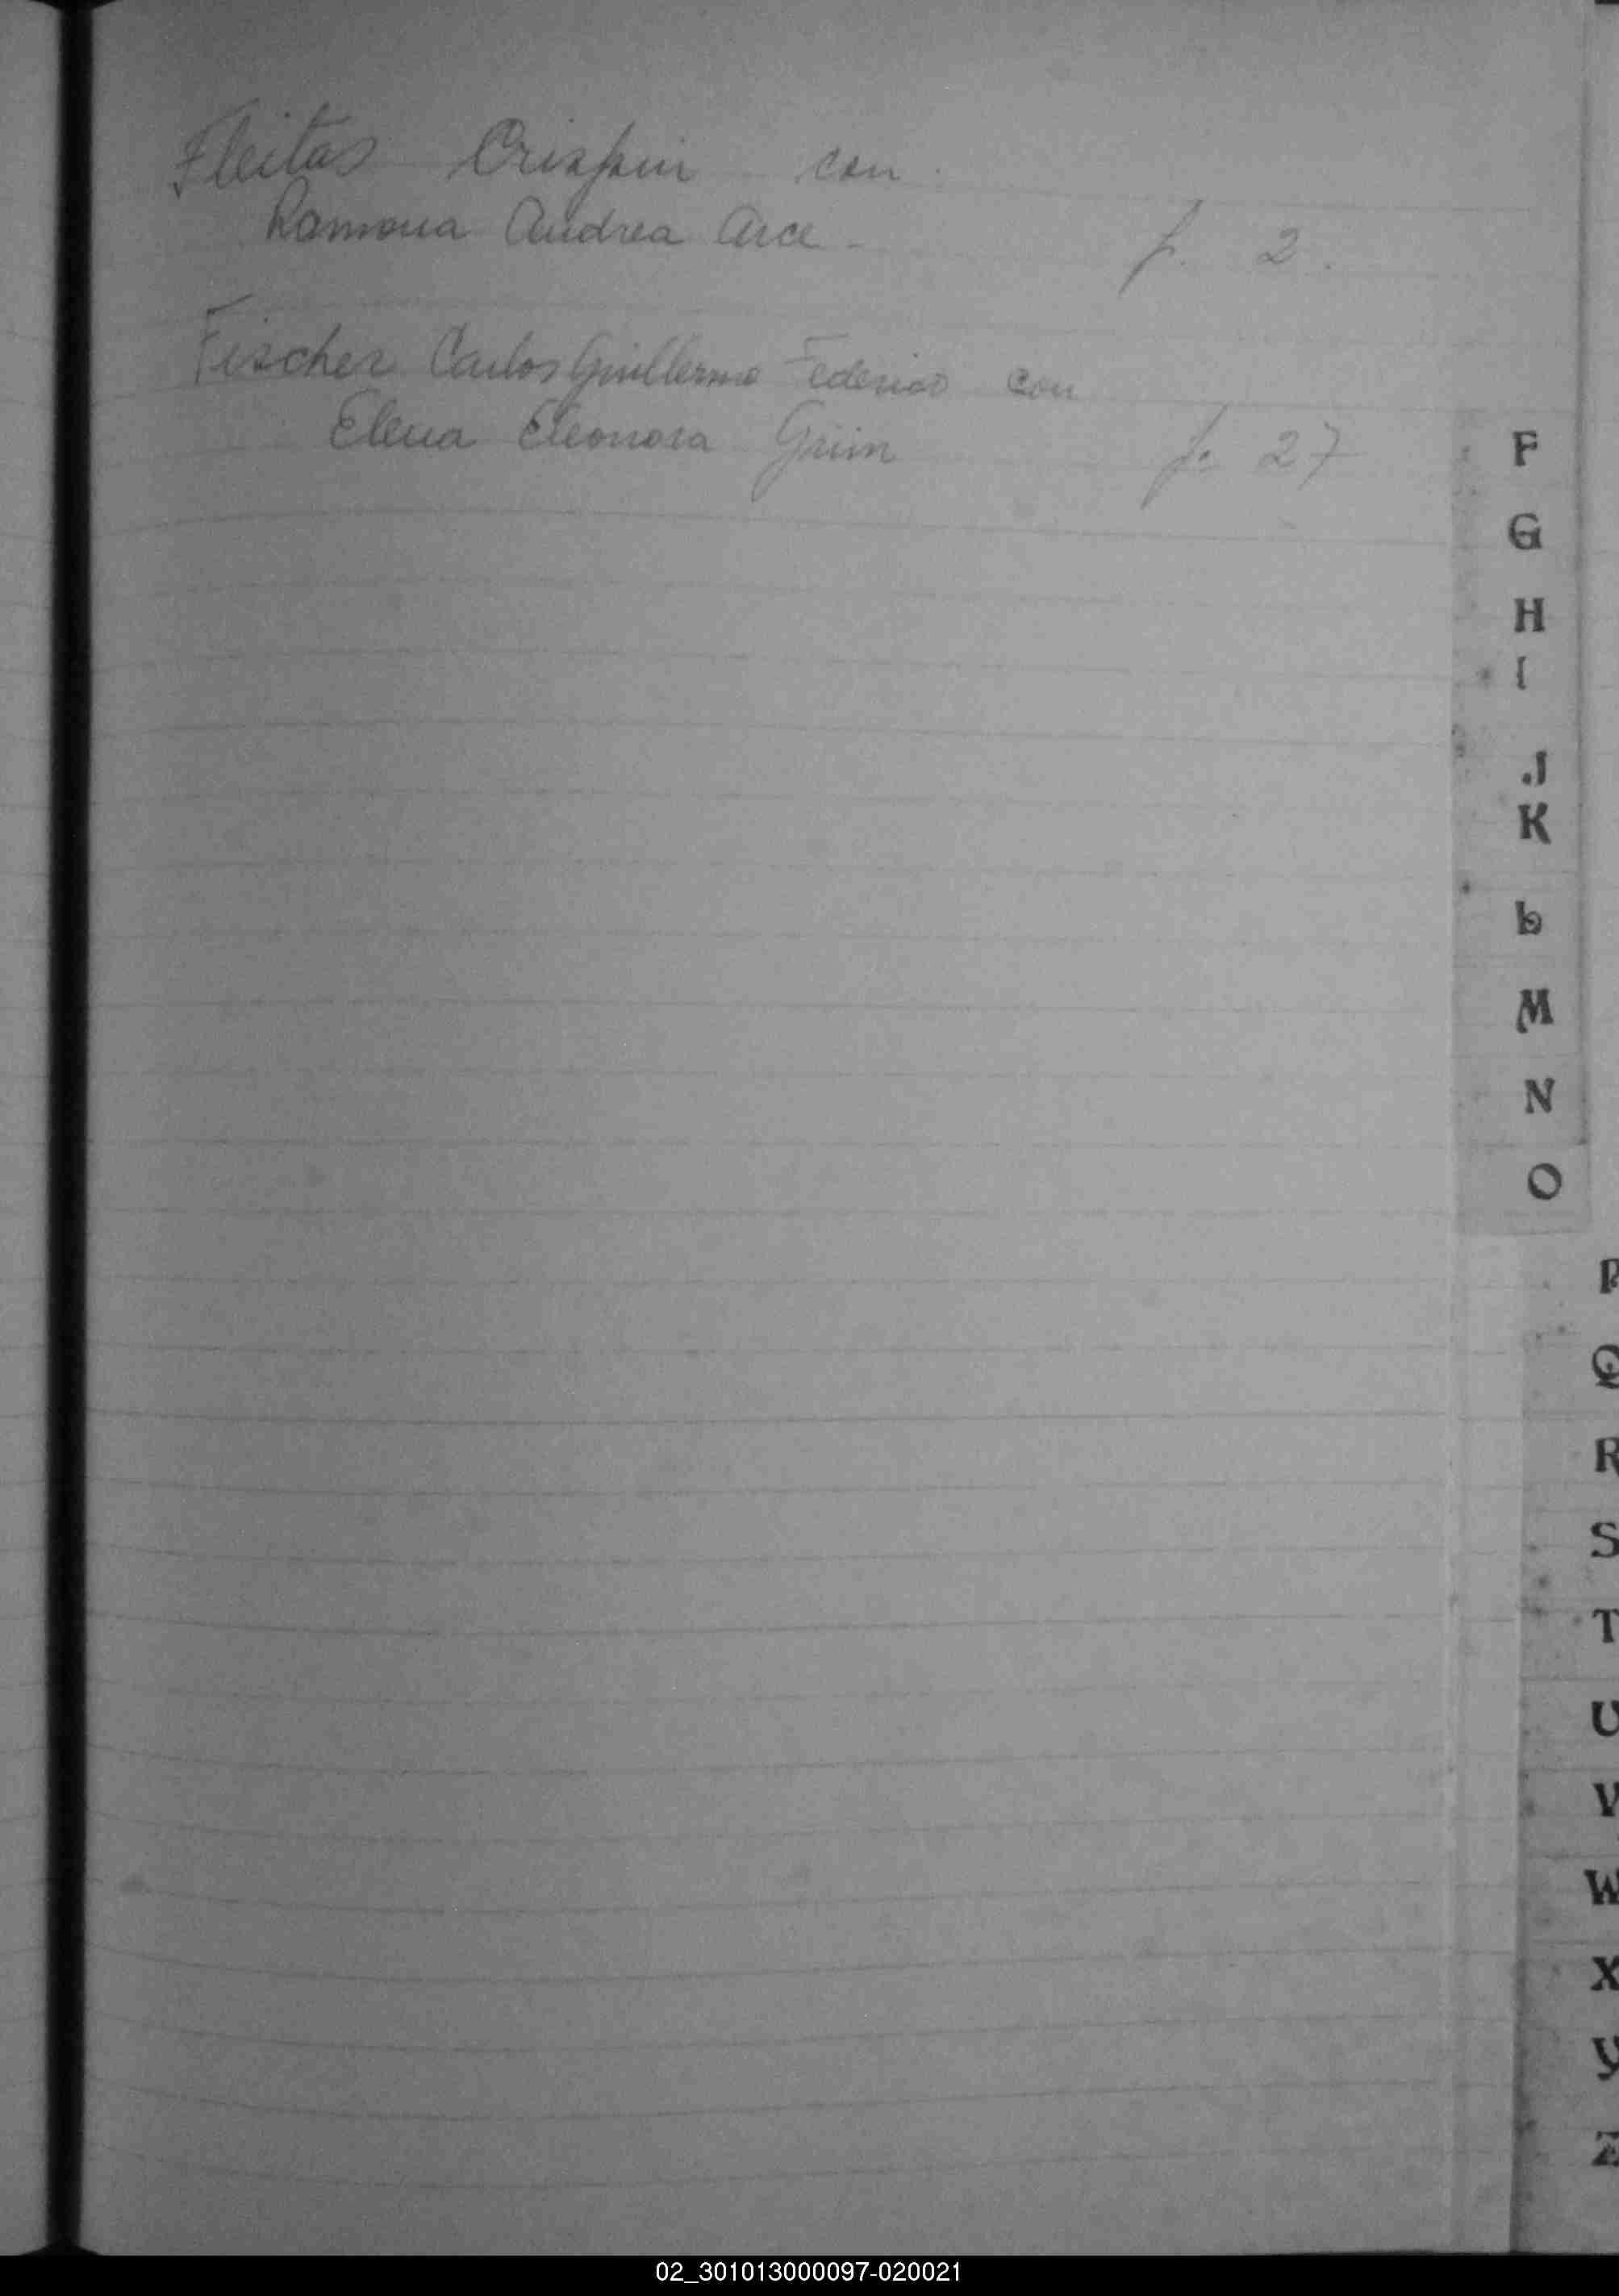 Fleitas Crispin con
Ramona Andrea Arce - f. 2.
Fischer Carlos Guillermo Federico con
Elena Eleonora Grim f. 27
F
G
H
I
J
K
L
M
N
O
P
Q
R
S
T
U
V
W
X
Y
Z
02_301013000097-020021